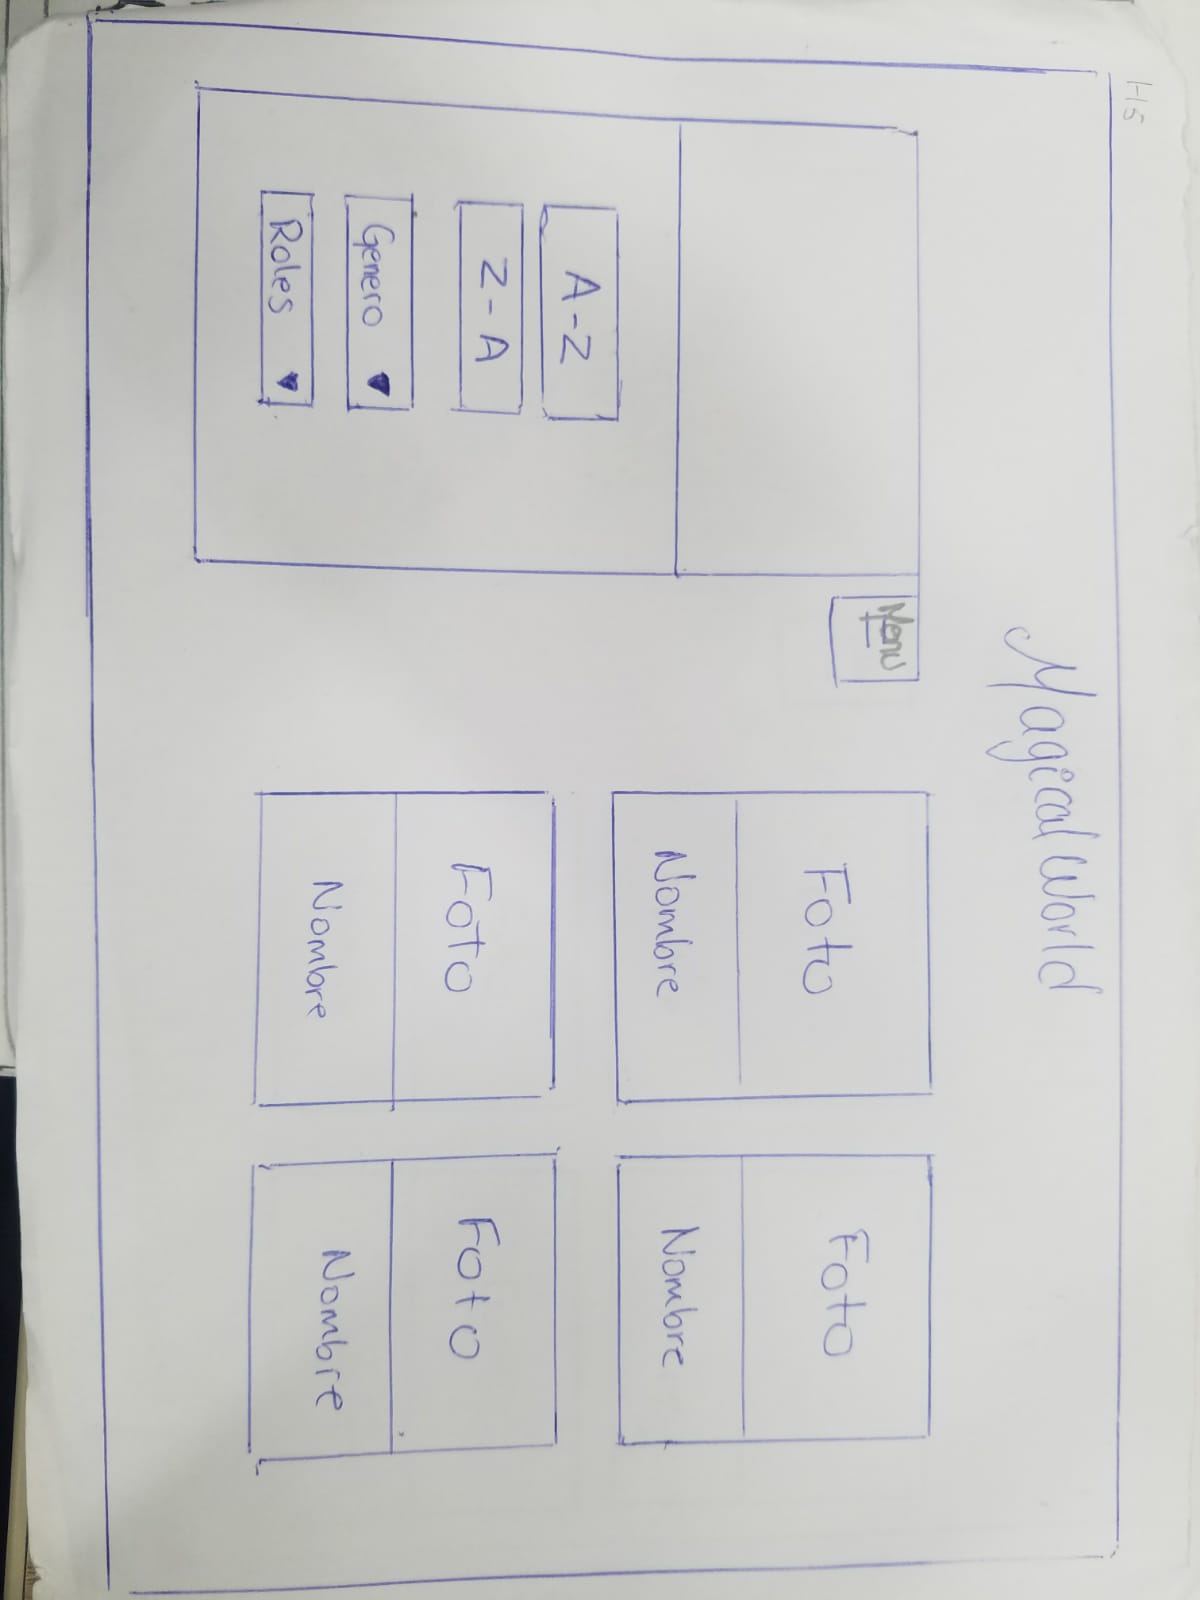 Magical World
Menu
A-Z
Z-A
Genero
Roles
Foto
Nombre
Foto
Nombre
Foto
Nombre
Foto
Nombre